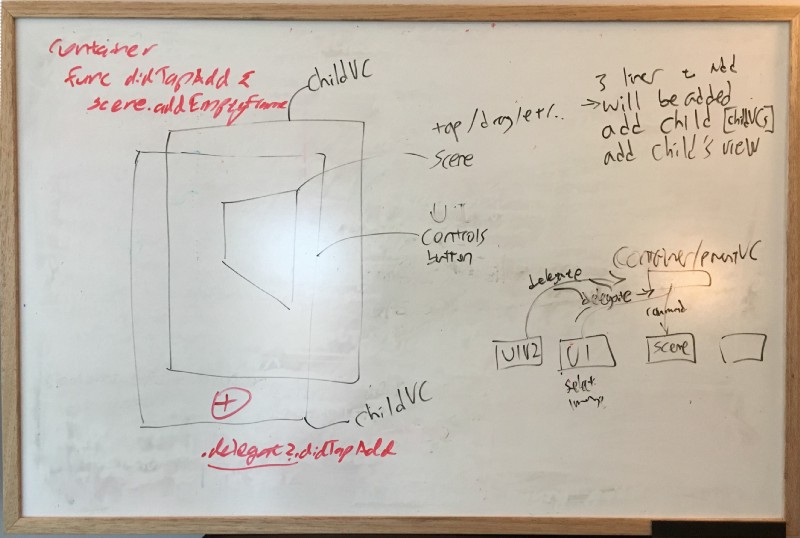 Container
func didTapAdd {
scene.addEmptyFrame
childVC
3 lines to add
→ will be added
add child [childVCs]
add child's view
tap/drag/etc..
scene
UI
controls
button
Container/parentVC
delegate
delegate
command
UIV2
UI
scene
select
+
childVC
.delegate?.didTapAdd